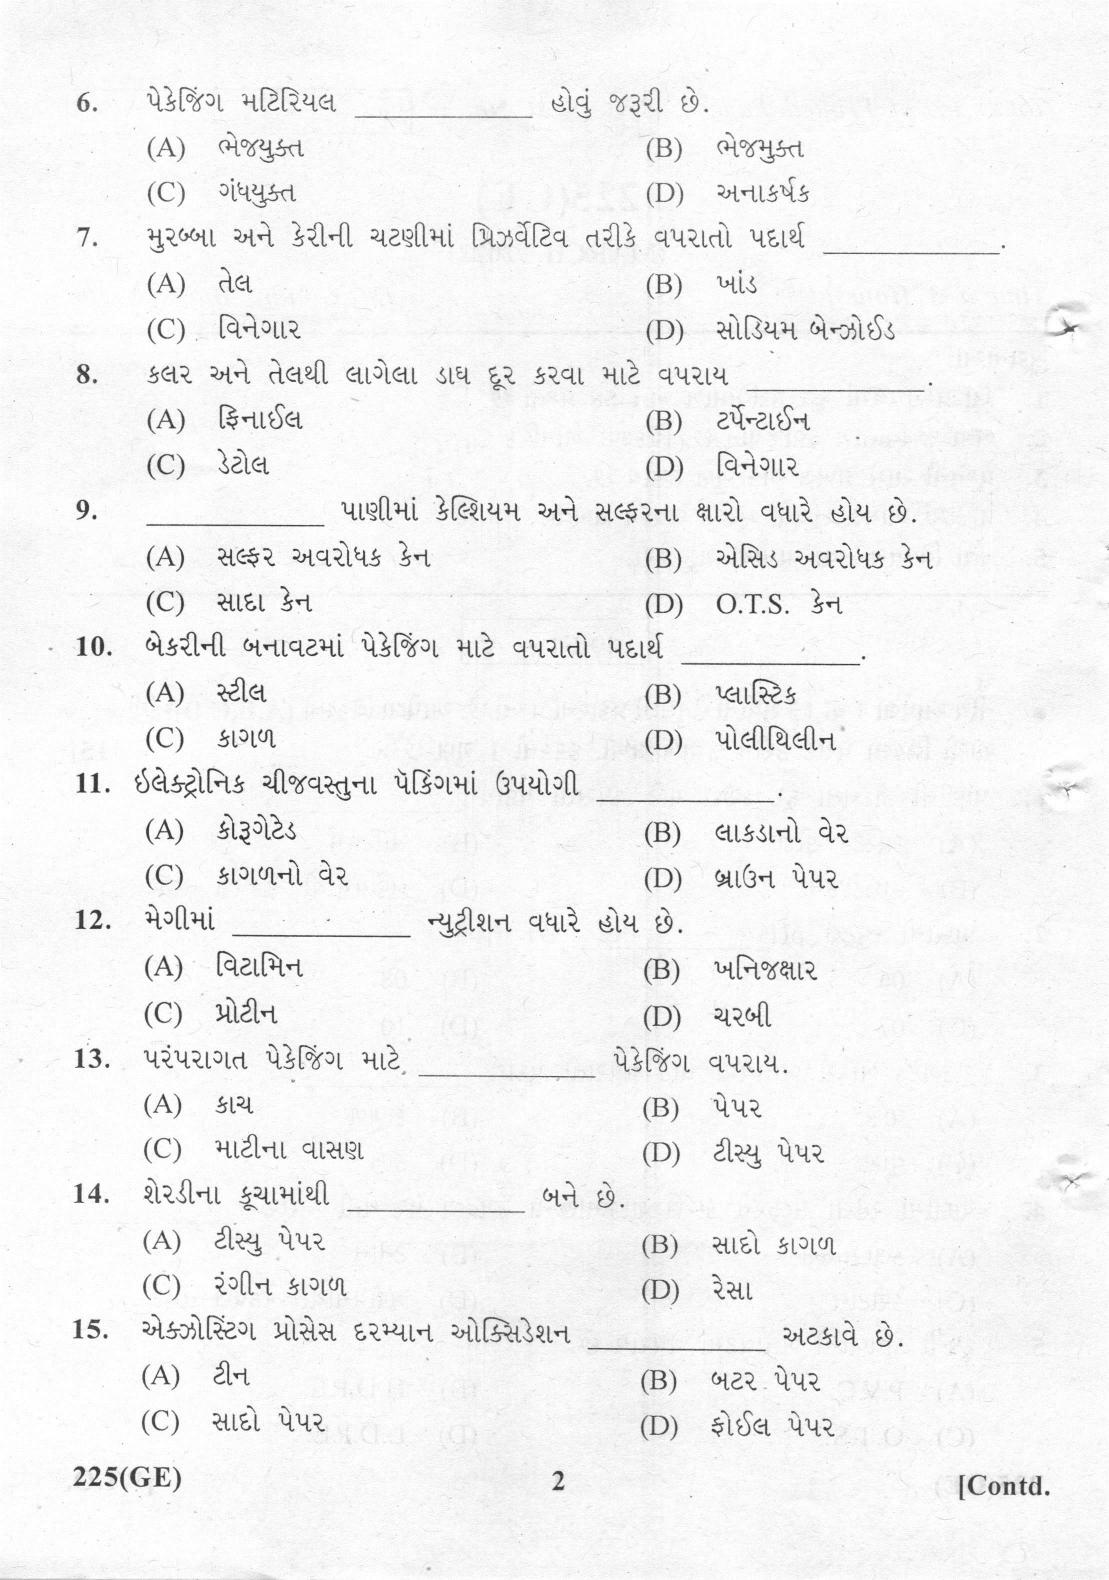 6. પેકેજિંગ મટિરિયલ ____________ હોવું જરૂરી છે.
(A) ભેજયુક્ત (B) ભેજમુક્ત
(C) ગંધયુક્ત (D) અનાકર્ષક
7. મુરબ્બા અને કેરીની ચટણીમાં પ્રિઝર્વેટિવ તરીકે વપરાતો પદાર્થ ____________.
(A) તેલ (B) ખાંડ
(C) વિનેગાર (D) સોડિયમ બેન્ઝોઈડ
8. કલર અને તેલથી લાગેલા ડાઘ દૂર કરવા માટે વપરાય ____________.
(A) ફિનાઈલ (B) ટર્પેન્ટાઈન
(C) ડેટોલ (D) વિનેગાર
9. ____________ પાણીમાં કેલ્શિયમ અને સલ્ફરના ક્ષારો વધારે હોય છે.
(A) સલ્ફર અવરોધક કેન (B) એસિડ અવરોધક કેન
(C) સાદા કેન (D) O.T.S. કેન
10. બેકરીની બનાવટમાં પેકેજિંગ માટે વપરાતો પદાર્થ ____________.
(A) સ્ટીલ (B) પ્લાસ્ટિક
(C) કાગળ (D) પોલીથિલીન
11. ઇલેક્ટ્રોનિક ચીજવસ્તુના પૅકિંગમાં ઉપયોગી ____________.
(A) કોરૂગેટેડ (B) લાકડાનો વેર
(C) કાગળનો વેર (D) બ્રાઉન પેપર
12. મેગીમાં ____________ ન્યુટ્રીશન વધારે હોય છે.
(A) વિટામિન (B) ખનિજક્ષાર
(C) પ્રોટીન (D) ચરબી
13. પરંપરાગત પેકેજિંગ માટે ____________ પેકેજિંગ વપરાય.
(A) કાચ (B) પેપર
(C) માટીના વાસણ (D) ટીસ્યુ પેપર
14. શેરડીના કૂચામાંથી ____________ બને છે.
(A) ટીસ્યુ પેપર (B) સાદો કાગળ
(C) રંગીન કાગળ (D) રેસા
15. એક્ઝોસ્ટિંગ પ્રોસેસ દરમ્યાન ઓક્સિડેશન ____________ અટકાવે છે.
(A) ટીન (B) બટર પેપર
(C) સાદો પેપર (D) ફોઈલ પેપર
225(GE) 2 [Contd.